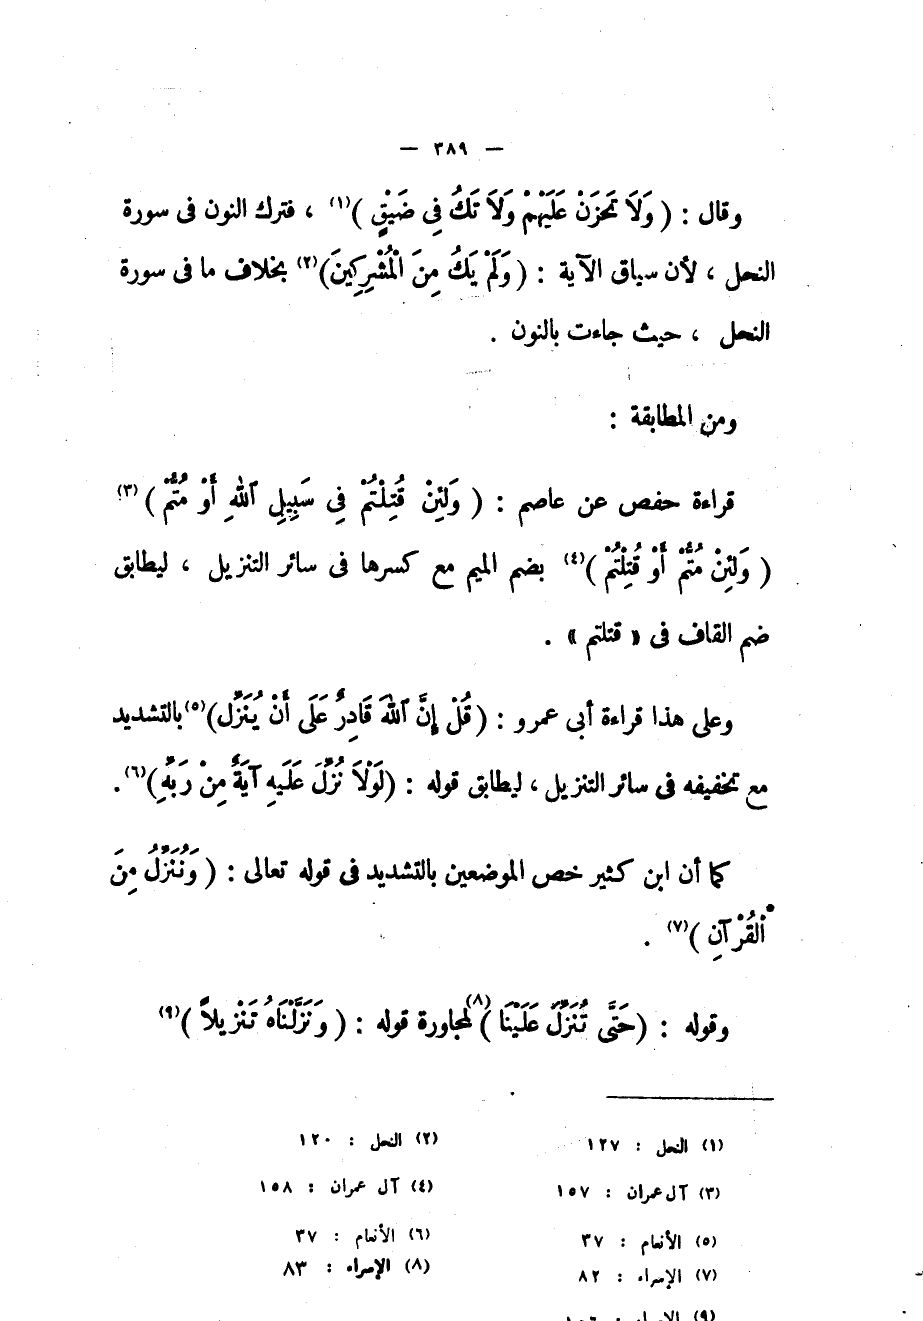 — ٣٨٩ —
وقال : ( وَلَا تَحْزَنْ عَلَيْهِمْ وَلَا تَكُ فِى ضَيْقٍ )(١) ، فترك النون فى سورة
النحل ، لأن سباق الآية : ( وَلَمْ يَكُ مِنَ الْمُشْرِكِينَ)(٢) بخلاف ما فى سورة
النحل ، حيث جاءت بالنون .
ومن المطابقة :
قراءة حفص عن عاصم : ( وَلَئِنْ قُتِلْتُمْ فِى سَبِيلِ ٱللهِ أَوْ مُتُّمْ )(٣)
( وَلَئِنْ مُتُّمْ أَوْ قُتِلْتُمْ )(٤) بضم الميم مع كسرها فى سائر التنزيل ، ليطابق
ضم القاف فى « قتلتم » .
وعلى هذا قراءة أبى عمرو : ( قُلْ إِنَّ ٱللهَ قَادِرٌ عَلَى أَنْ يُنَزِّلَ)(٥) بالتشديد
مع تخفيفه فى سائر التنزيل ، ليطابق قوله : (لَوْلَا نُزِّلَ عَلَيهِ آيَةٌ مِنْ رَبِّهِ)(٦).
كما أن ابن كثير خص الموضعين بالتشديد فى قوله تعالى : ( وَنُنَزِّلُ مِنَ
ٱلْقُرْآنِ )(٧) .
وقوله : (حَتَّى تُنَزِّلَ عَلَيْنَا )(٨) لمجاورة قوله : ( وَنَزَّلْنَاهُ تَنْزِيلاً )(٩)
(١) النحل : ١٢٧ (٢) النحل : ١٢٠
(٣) آل عمران : ١٥٧ (٤) آل عمران : ١٥٨
(٥) الأنعام : ٣٧ (٦) الأنعام : ٣٧
(٧) الإسراء : ٨٢ (٨) الإسراء : ٨٣
(٩) الإسراء :